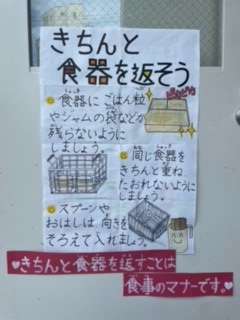 きちんと
食器を返そう
ピカピカ
食器にごはん粒
やジャムの袋などが
残らないように
しましょう。
同じ食器を
きちんと重ね
たおれないように
しましょう。
スプーンや
おはしは向きを
そろえて入れましょう。
♥きちんと食器を返すことは
食事のマナーです。♥